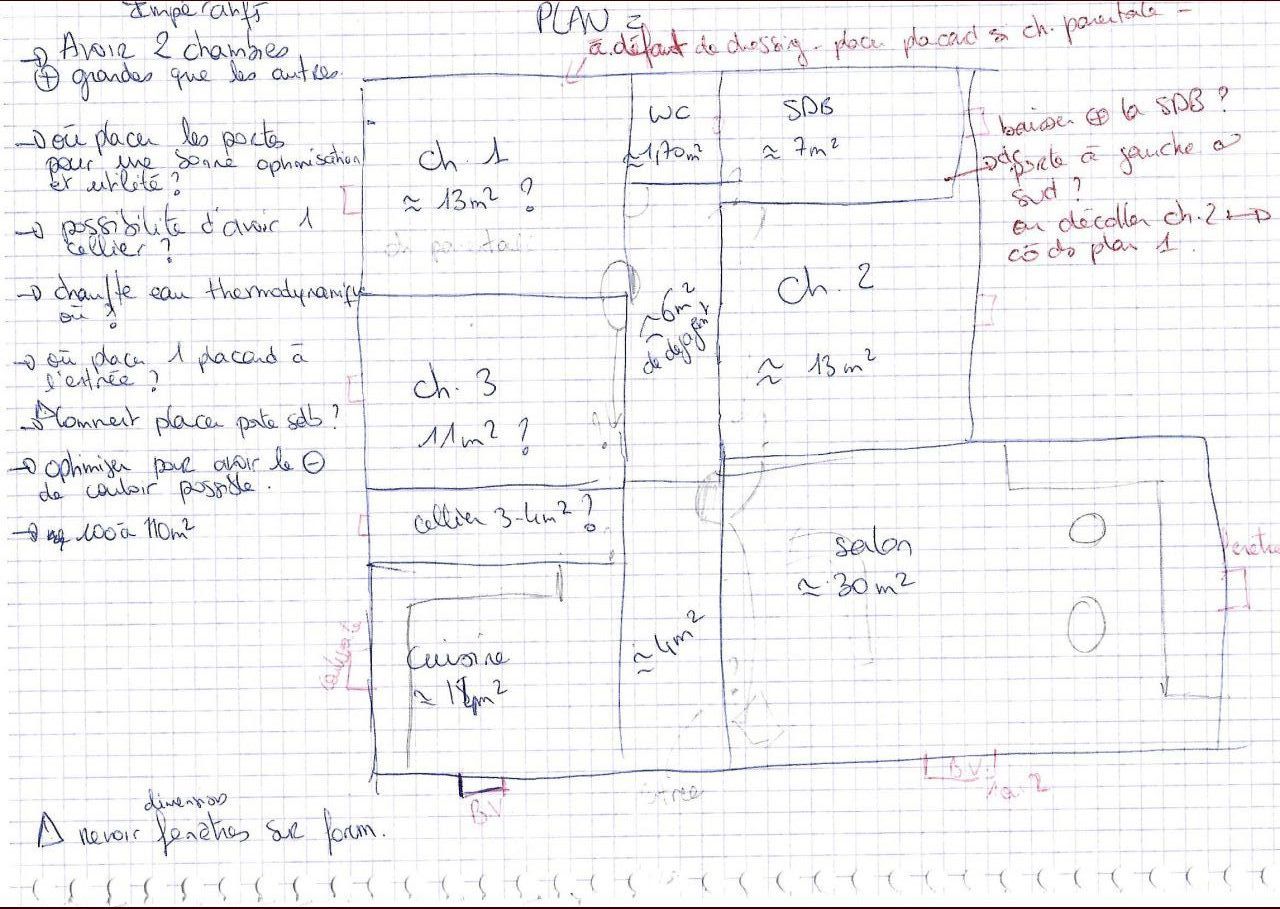 Impératifs
→ Avoir 2 chambres
⊕ grandes que les autres.
→ où placer les portes
pour une bonne optimisation
et utilité ?
→ possibilité d'avoir 1
cellier ?
→ chauffe eau thermodynamique
où ?
→ où placer 1 placard à
l'entrée ?
→ Comment placer porte sdb ?
→ optimiser pour avoir le ⊖
de couloir possible.
→ 100 à 110m²
dimensions
△ revoir fenêtres sur forum.
PLAN 2
à défaut de dressing - placer placard ch. parentale -
WC
≈1,70m²
SDB
≈ 7m²
ch. 1
≈ 13m² ?
ch parentale
baisser ⊕ la SDB ?
porte à gauche
sud ?
ou décaller ch. 2
plan 1.
ch. 2
≈ 13m²
~6m²
de dégagmt
ch. 3
11m² ?
?
cellier 3-4m² ?
salon
≈ 30m²
fenêtre
cuisine
≈4m²
BV
BV
entrée